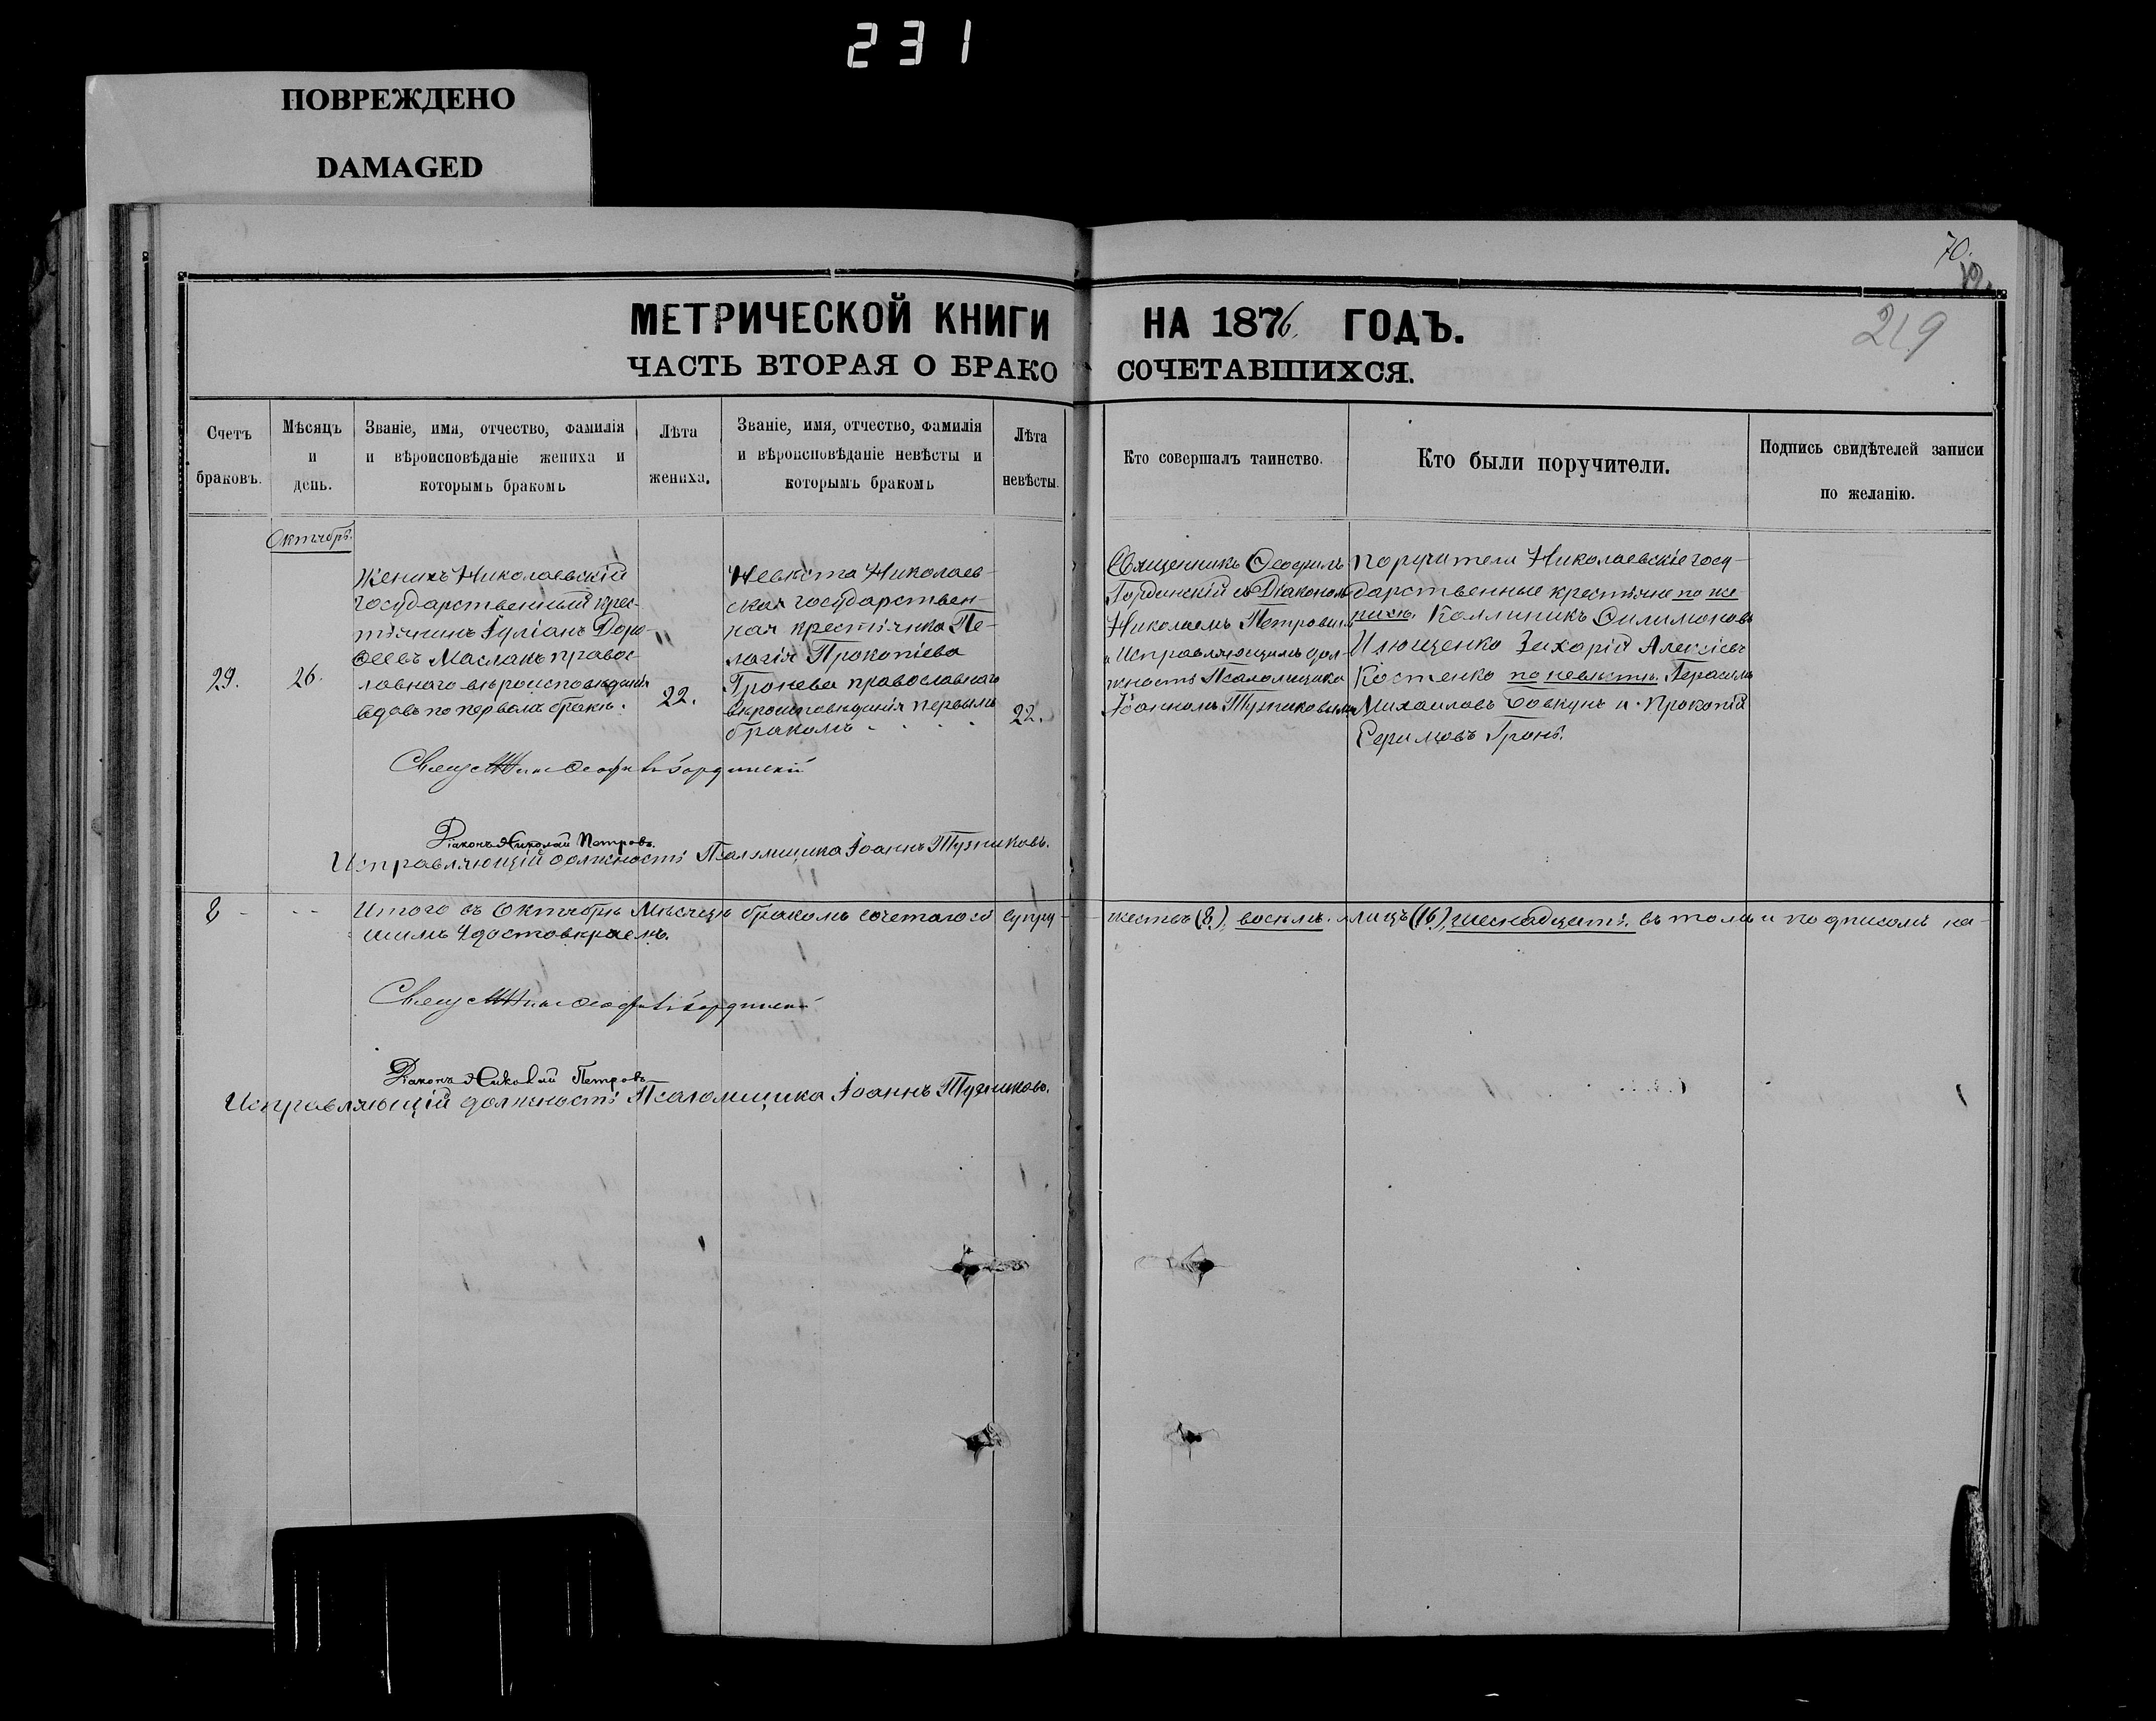 231
ПОВРЕЖДЕНО
DAMAGED
70.
219
МЕТРИЧЕСКОЙ КНИГИ НА 1876 ГОДЪ.
ЧАСТЬ ВТОРАЯ О БРАКОСОЧЕТАВШИХСЯ.
Счетъ
браковъ.
Мѣсяцъ
и
день.
Званіе, имя, отчество, фамилія
и вѣроисповѣданіе жениха и
которымъ бракомъ
Лѣта
жениха.
Званіе, имя, отчество, фамилія
и вѣроисповѣданіе невѣсты и
которымъ бракомъ
Лѣта
невѣсты.
Кто совершалъ таинство.
Кто были поручители.
Подпись свидѣтелей записи
по желанію.
Октябрь.
29.
26.
Женихъ Николаевскій
государственный крес-
тьянинъ Іуліанъ Доро-
ѳеевъ Маслакъ правос-
лавного вѣроисповѣданія
вдовъ по первомъ бракѣ.
22.
Невѣста Николаев-
ская государствен-
ная крестьянка Пе-
лагія Прокопіева
Гронева православного
вѣроисповѣданія первымъ
бракомъ
22.
Священникъ Ѳеофилъ
Гординскій съ Діакономъ
Николаемъ Петровымъ
и Исправляющимъ дол-
жность Псаломщика
Іоанномъ Тузниковымъ
Поручители Николаевскіе госу-
дарственные крестьяне по же-
нихѣ. Каллиникъ Филимоновъ
Ильющенко Захарій Алексіевъ
Костенко по невѣстѣ. Герасимъ
Михаиловъ Бовкунъ и Прокопій
Ефимовъ Гронь.
Діаконъ Николай Петровъ.
Исправляющій должность Псаломщика Іоаннъ Тузниковъ.
8 - - -
Итого въ Октябрѣ Мѣсяцѣ бракомъ сочеталось супру-жествъ (8.), восьмъ. лицъ (16.), шеснадцать. въ томъ и подписомъ на-
шимъ удостовѣряемъ.
Діаконъ Николай Петровъ
Исправляющій должность Псаломщика Іоаннъ Тузниковъ.